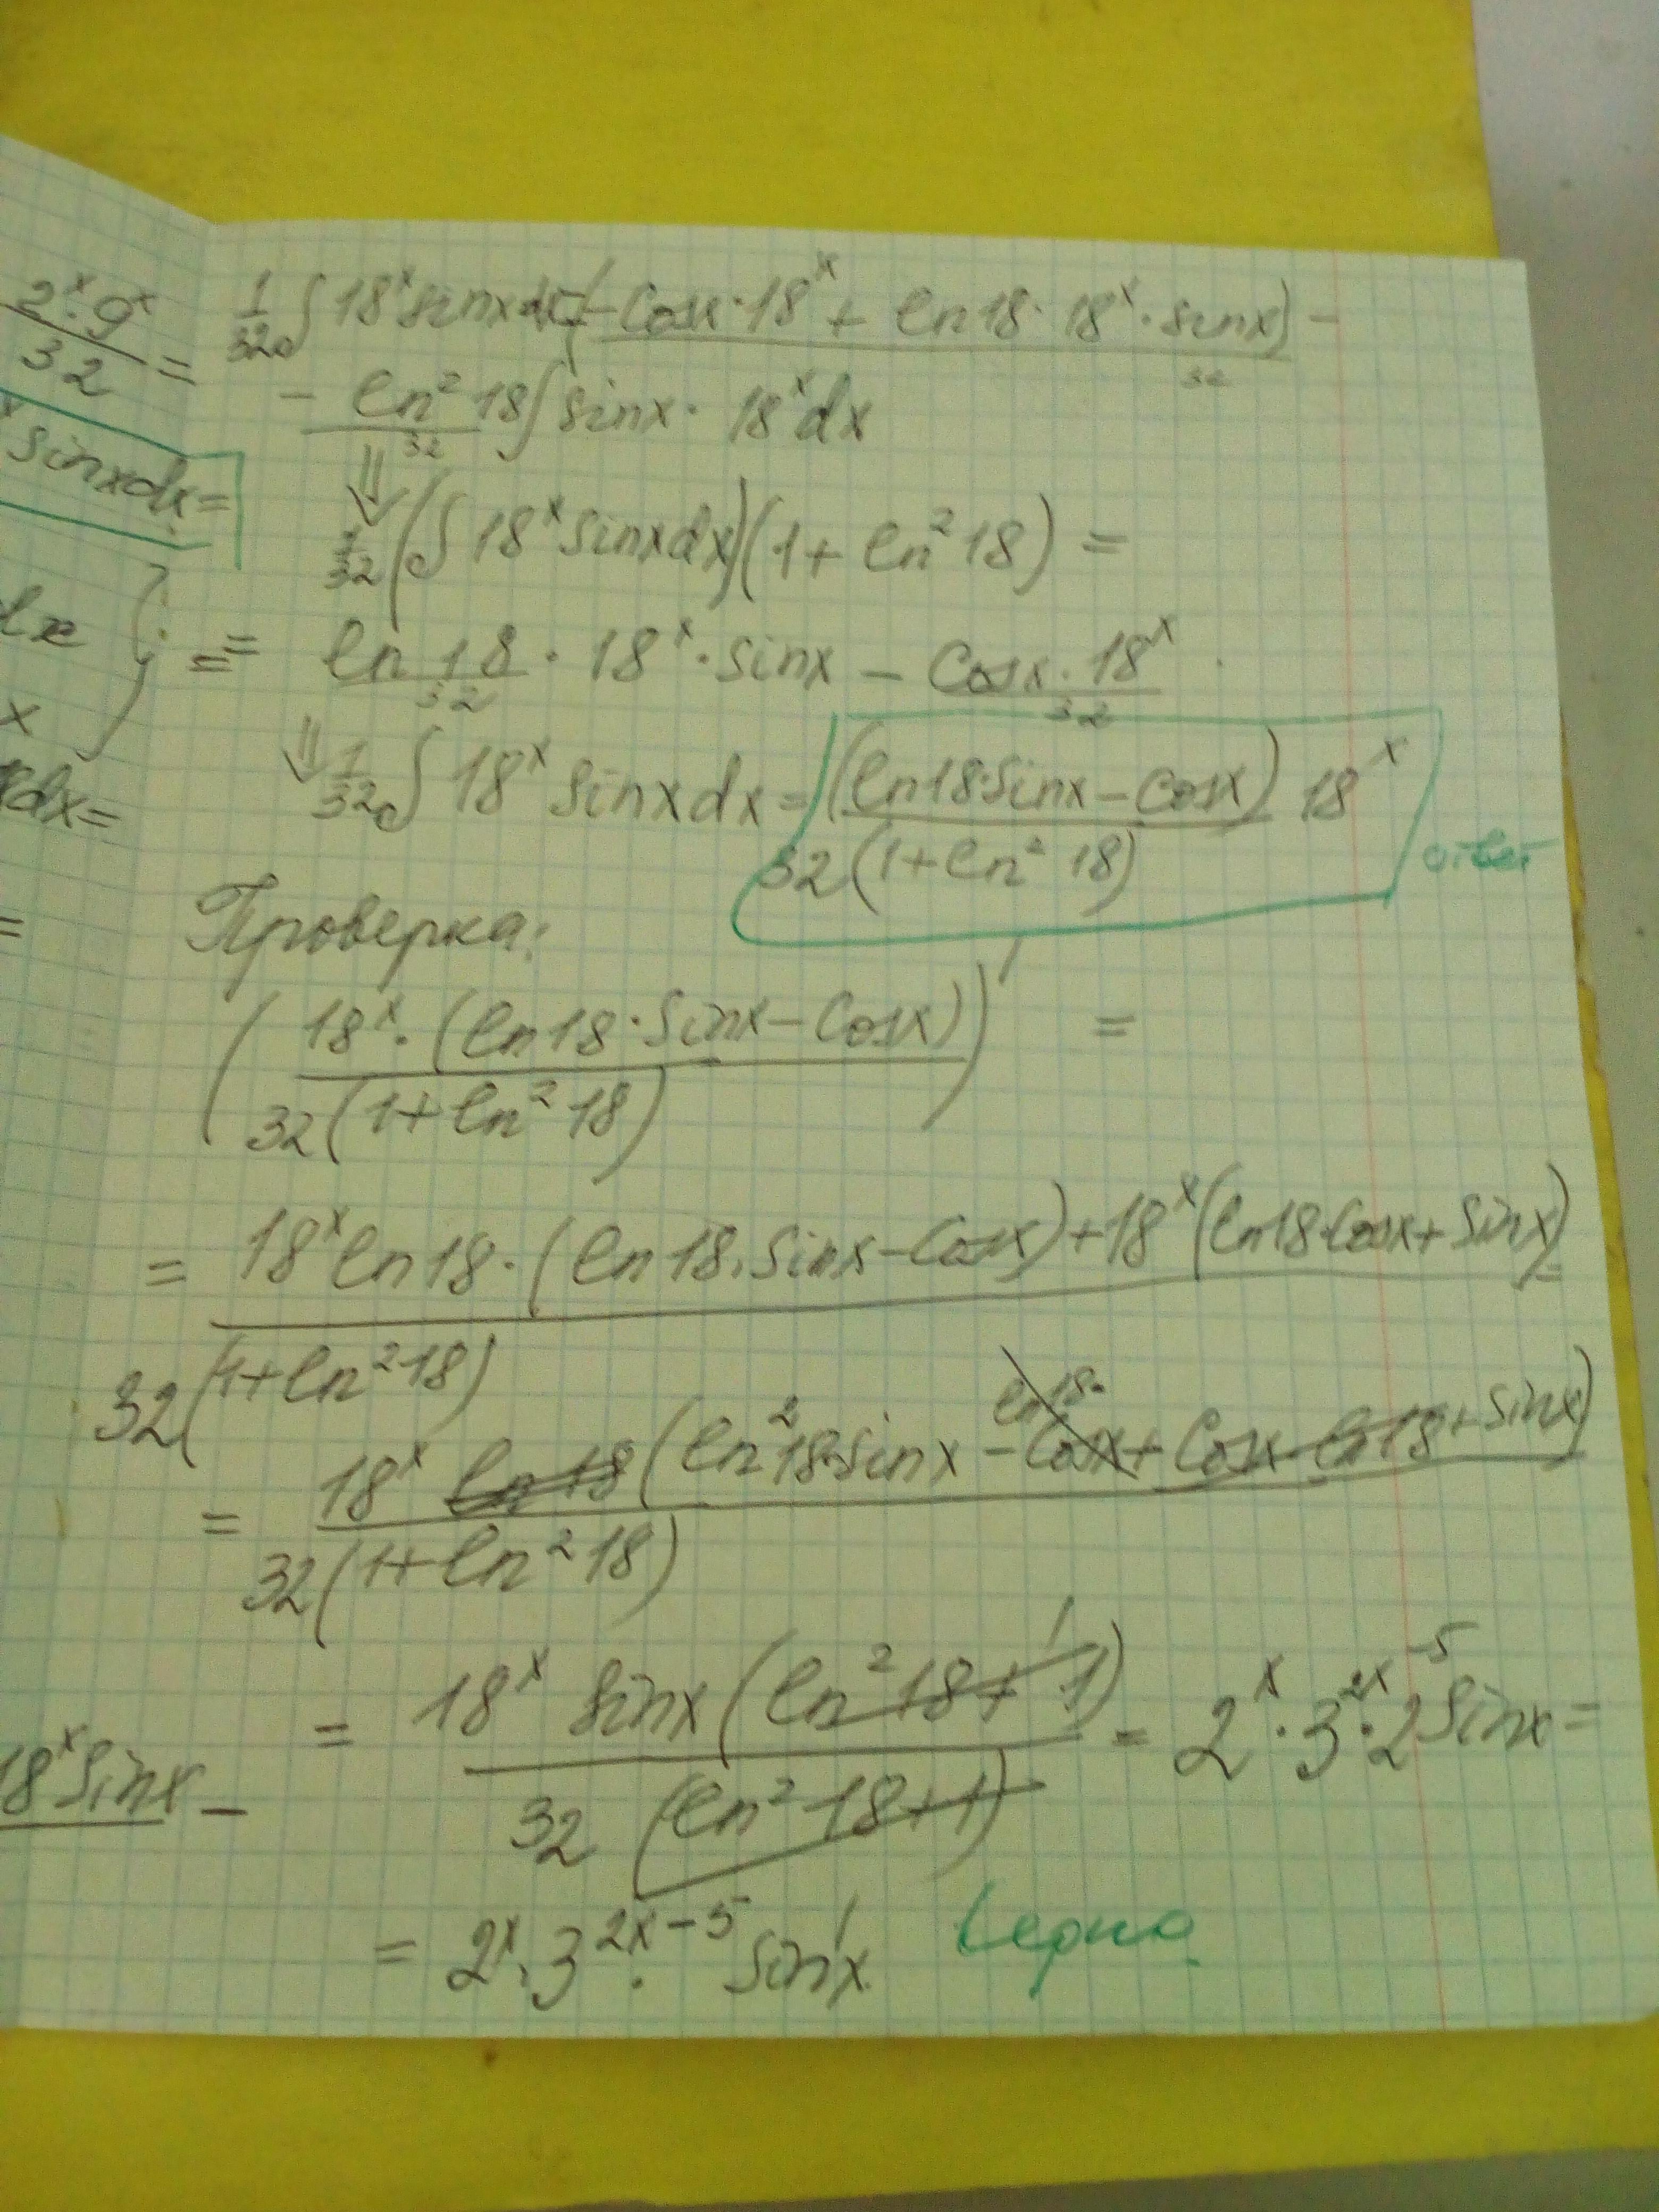 2ˣ·9ˣ/32 =
ˣ sinxdx=
dx
x
dx=
=
18ˣsinx −
1/32 ∫18ˣsinxdx=(−cosx·18ˣ + ln18·18ˣ·sinx)/32 −
− ln²18/32 ∫sinx·18ˣdx
⇓
1/32 (∫18ˣsinxdx)(1+ln²18) =
== ln18/32·18ˣ·sinx − cosx·18ˣ/32
⇓ 1/32 ∫18ˣ sinxdx = (ln18·sinx−cosx)/32(1+ln²18) 18ˣ ответ
Проверка:
(18ˣ·(ln18·sinx−cosx)/32(1+ln²18))′ =
= 18ˣln18·(ln18·sinx−cosx)+18ˣ(ln18·cosx+sinx)/32(1+ln²18) =
= 18ˣ ln18(ln²18·sinx − ln18·cosx + cosx·ln18+sinx)/32(1+ln²18)
= 18ˣ sinx(ln²18+1)/32(ln²18+1) = 2ˣ·3²ˣ·2⁻⁵sinx=
= 2ˣ·3²ˣ⁻⁵·sinx верно